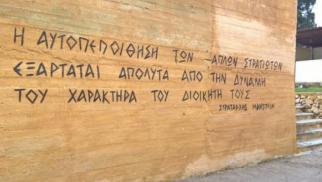 Η ΑΥΤΟΠΕΠΟΙΘΗΣΗ ΤΩΝ ΑΠΛΩΝ ΣΤΡΑΤΙΩΤΩΝ
ΕΞΑΡΤΑΤΑΙ ΑΠΟΛΥΤΑ ΑΠΟ ΤΗΝ ΔΥΝΑΜΗ
ΤΟΥ ΧΑΡΑΚΤΗΡΑ ΤΟΥ ΔΙΟΙΚΗΤΗ ΤΟΥΣ